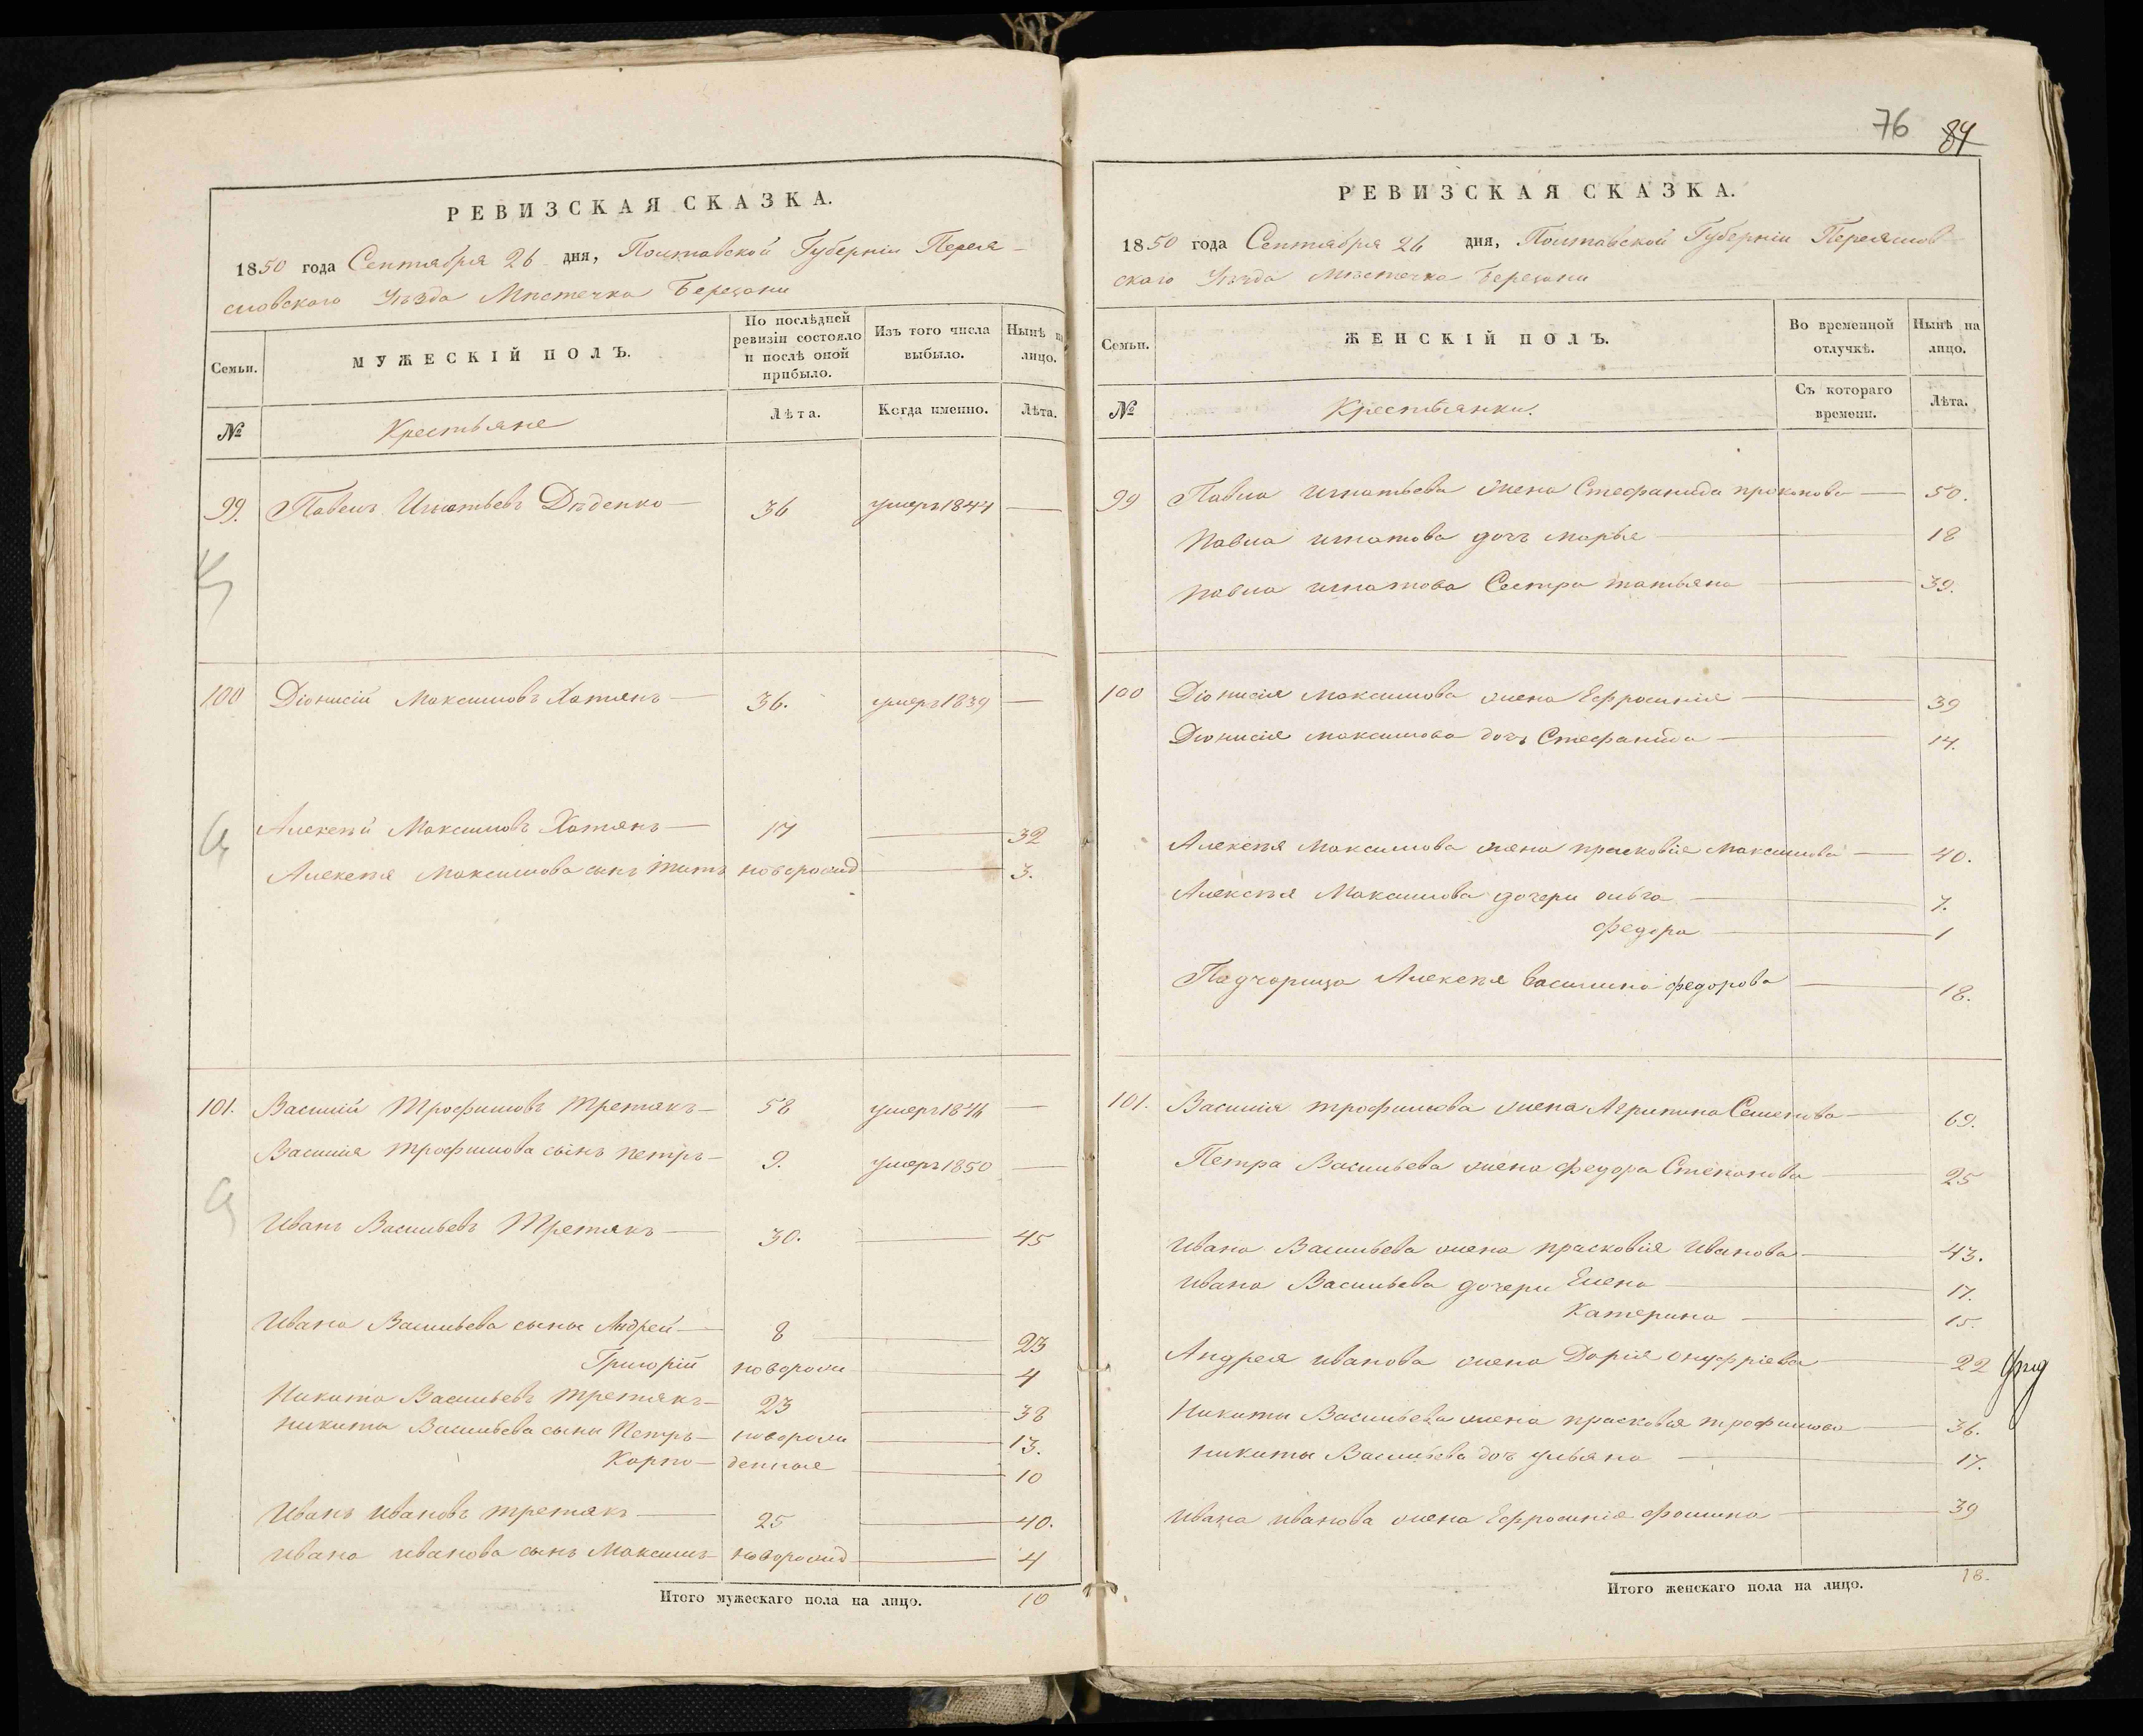 РЕВИЗСКАЯ СКАЗКА.
1850 года Сентября 26 дня, Полтавской Губернiи Перея-
словского Уѣзда Мѣстечка Березани
Семьи.
МУЖЕСКIЙ ПОЛЪ.
По послѣдней
ревизiи состояло
и послѣ оной
прибыло.
Изъ того числа
выбыло.
Нынѣ на
лицо.
№
Крестьяне
Лѣта.
Когда именно.
Лѣта.
99. Павелъ Игнатьевъ Дѣденко — 36 умеръ 1844 —
100 Дiонисiй Максимовъ Хатянъ — 36. умеръ 1839 —
Алексѣй Максимовъ Хатянъ — 17 — 32
Алексѣя Максимова сынъ Титъ новорожд — 3.
101. Василiй Трофимовъ Третякъ — 58 умеръ 1846 —
Василiя Трофимова сынъ Петръ — 9. умеръ 1850 —
Иванъ Васильевъ Третякъ — 30. — 45
Ивана Васильева сыны Андрей — 8 — 23
Григорiй новорож — 4
Никита Васильевъ Третякъ — 23 — 38
Никиты Васильева сыны Петръ — новорож — 13.
Карпо — денные — 10
Иванъ Ивановъ Третякъ — 25 — 40.
Ивана Иванова сынъ Максимъ — новорожд — 4
Итого мужескаго пола на лицо. 10
76 84
РЕВИЗСКАЯ СКАЗКА.
1850 года Сентября 26 дня, Полтавской Губернiи Переяслов
скаго Уѣзда Мѣстечка Березани
Семьи.
ЖЕНСКIЙ ПОЛЪ.
Во временной
отлучкѣ.
Нынѣ на
лицо.
№
Крестьянки.
Съ котораго
времени.
Лѣта.
99 Павла Игнатьева жена Стефанида Прокопова — 50.
Павла Игнатова дочь Марья — 18
Павла Игнатова Сестра Татьяна — 39.
100 Дiонисiя Максимова жена Ефросинiя — 39
Дионисiя Максимова дочь Стефанида — 14.
Алексѣя Максимова жена Прасковiя Максимова — 40.
Алексѣя Максимова дочери Ольга — 7.
Федора — 1
Падчорица Алексѣя Василина Федорова — 18.
101. Василiя Трофимова жена Агрипина Семенова — 69.
Петра Васильева жена Федора Степанова — 25
Ивана Васильева жена Прасковiя Иванова — 43.
Ивана Васильева дочери Елена — 17.
Катерина — 15.
Андрея Иванова жена Дарiя Онуфрiева — 22
Никиты Васильева жена Прасковья Трофимова — 36.
Никиты Васильева доч Ульяна — 17.
Ивана Иванова жена Ефросинiя Фомина — 39
Итого женскаго пола на лицо. 18.